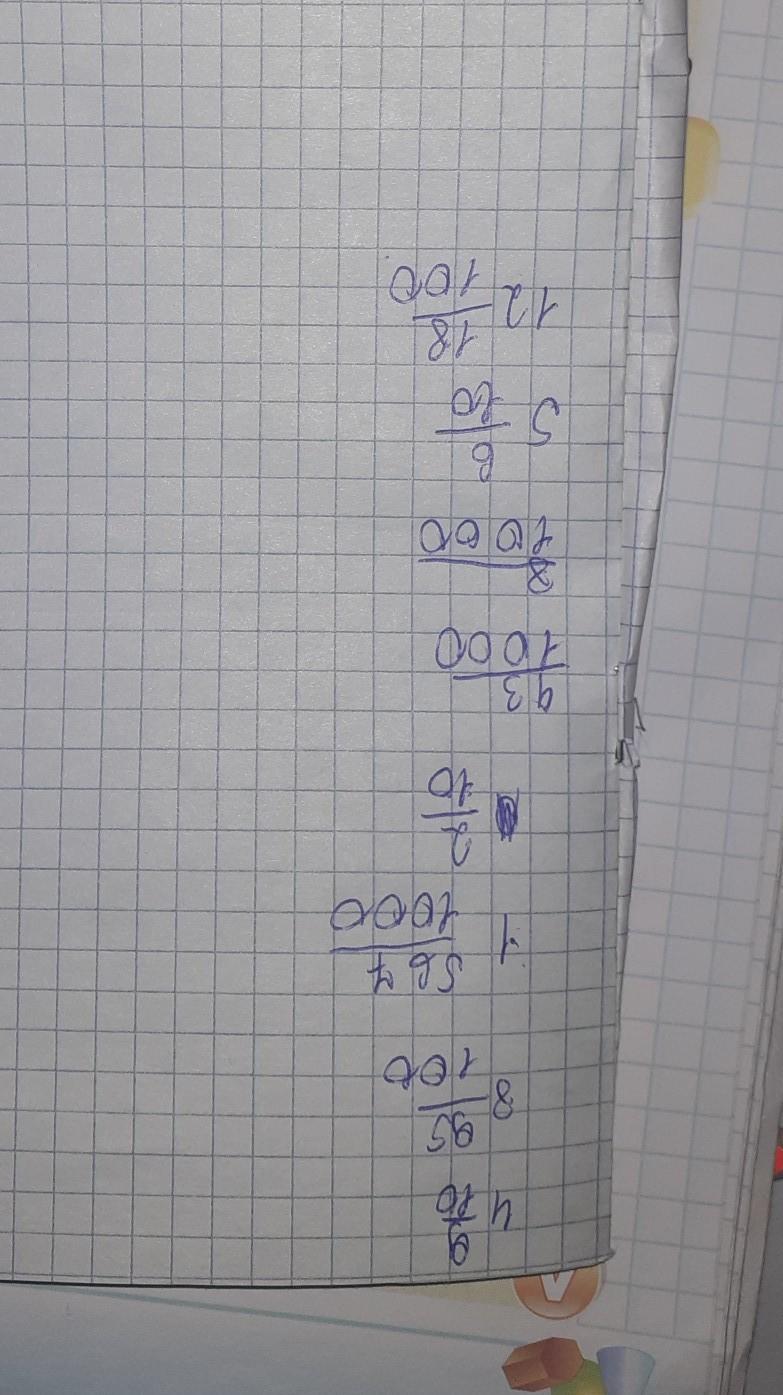 4 9/10
8 95/100
1 567/1000
2/10
93/1000
8/1000
5 6/10
12 18/100